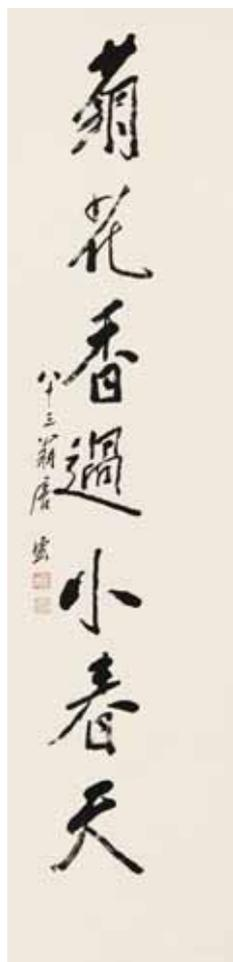 花香過小春天
八十三翁唐雲